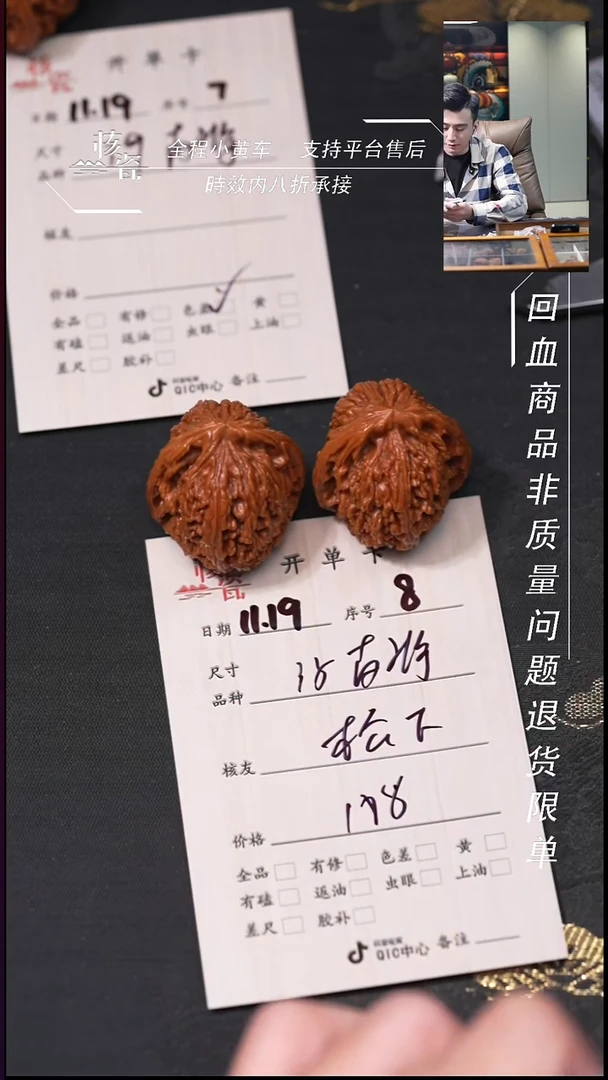 开单卡
日期 11.19 序号 7
尺寸
品种
核友
价格
全品 有修 色差 黄
有磕 返油 虫眼 上油
差尺 胶补
QIC中心 备注
核瓷
全程小黄车 支持平台售后
時效内八折承接
回血商品非质量问题退货限单
开单卡
日期 11.19 序号 8
尺寸
品种
核友 松下
价格 198
全品 有修 色差 黄
有磕 返油 虫眼 上油
差尺 胶补
抖音电商
QIC中心 备注